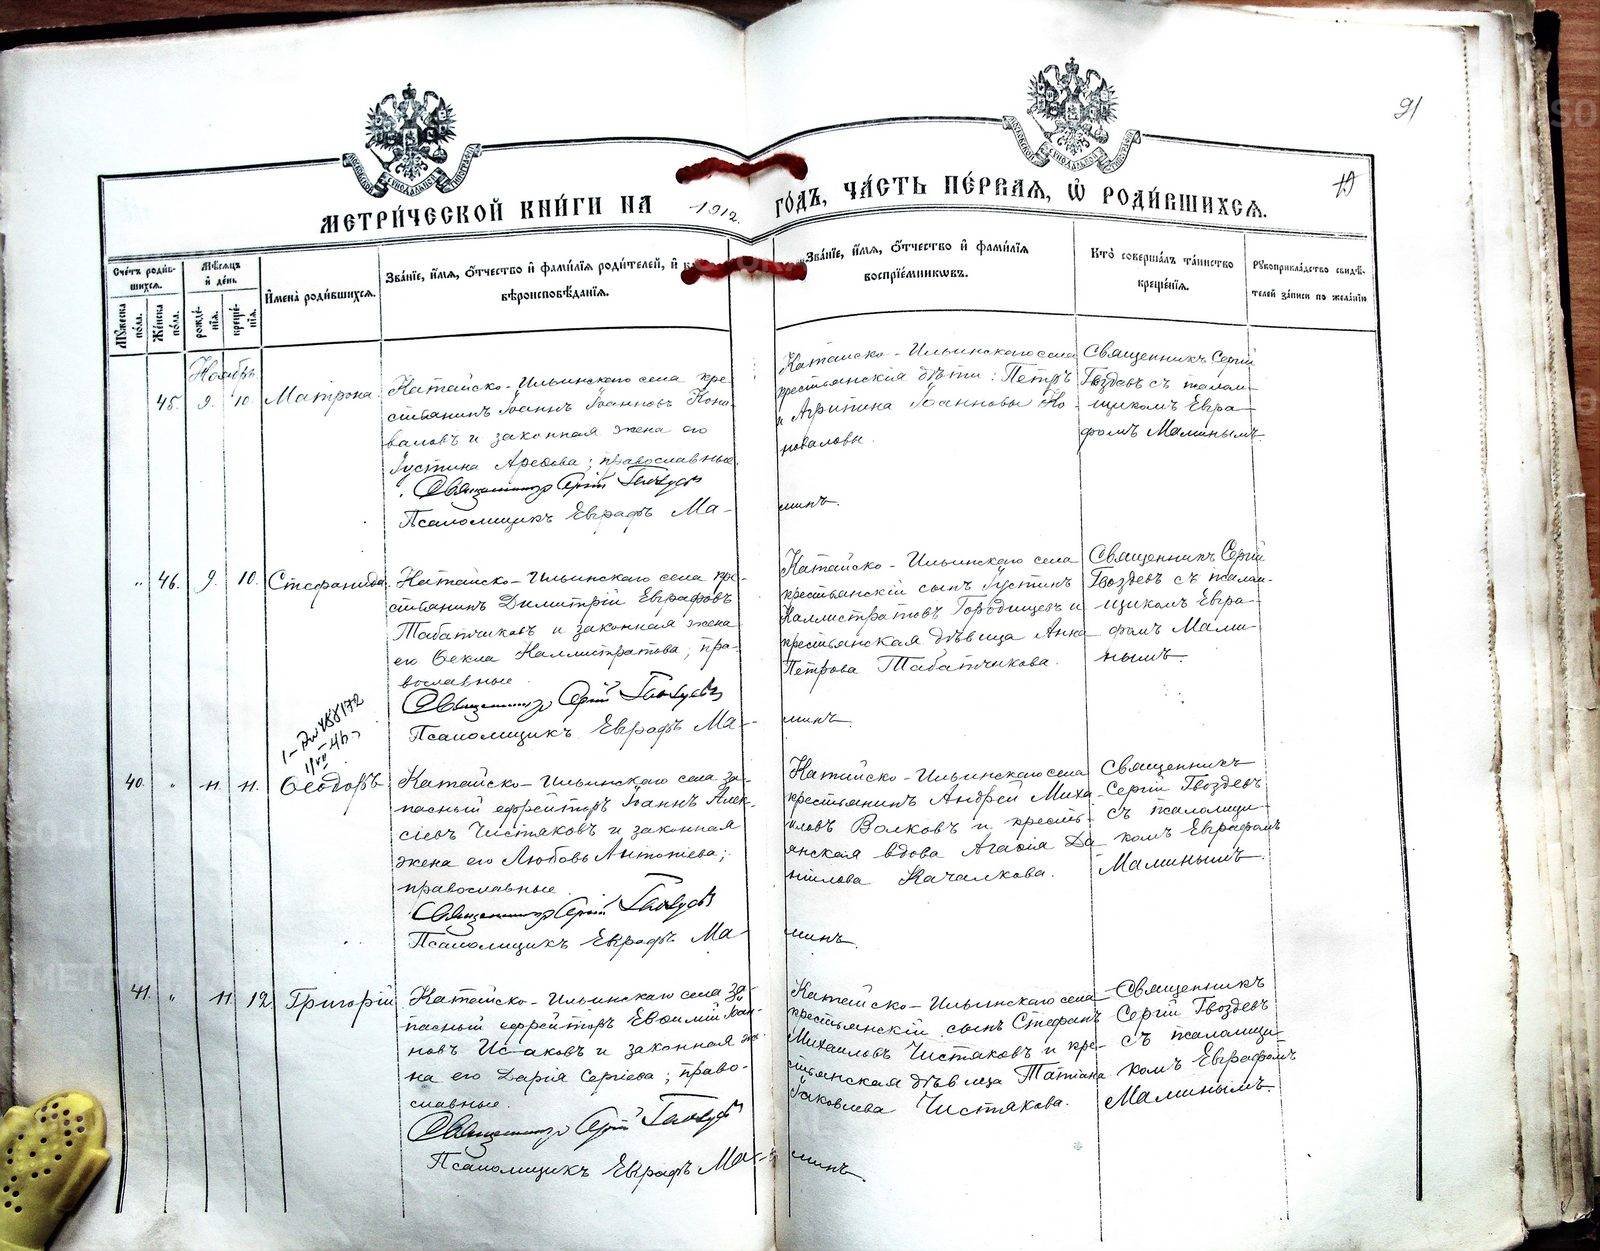 91
19
МЕТРИ́ЧЕСКОЙ КНИ́ГИ НА 1912. ГО́ДЪ, ЧА́СТЬ ПЕ́РВАЯ, Ѿ РОДИ́ВШИХСЯ.
Сче́тъ роди́в-
шихся.
Мѣ́сяцъ
и де́нь
Имена̀ роди́вшихся.
Зва́нїе, и́мя, о́тчество и фами́лїя роди́телей, и к
вѣроисповѣ́данїя.
Зва́нїе, и́мя, о́тчество и фами́лїя
воспрїе́мниковъ.
Кто̀ соверша́лъ та́инство
креще́нїя.
Рукоприкла́дство свидѣ́-
телей за́писи по жела́нїю
Му́жеска
по́ла.
Же́нска
по́ла.
рожде́-
нїя.
креще́-
нїя.
Ноябрь
45. 9. 10 Матрона
Катайско-Ильинскаго села кре-
стьянинъ Іоаннъ Іоанновъ Коно-
валовъ и законная жена его
Іустина Ареѳова; православные.
Священникъ Сергій Гвоздевъ
Псаломщикъ Евграфъ Ма-
Катайско-Ильинскаго села
крестьянскія дѣти: Петръ
и Агрипина Іоанновы Ко-
новаловы.
минъ.
Священникъ Сергій
Гвоздевъ съ псалом-
щикомъ Евгра-
фомъ Маминымъ.
„ 46. 9. 10. Стефанида
Катайско-Ильинскаго села кре-
стьянинъ Димитрій Евграфовъ
Табатчиковъ и законная жена
его Ѳекла Каллистратова; пра-
вославные.
Священникъ Сергій Гвоздевъ
Псаломщикъ Евграфъ Ма-
Катайско-Ильинскаго села
крестьянскій сынъ Іустинъ
Каллистратовъ Городищевъ и
крестьянская дѣвица Анна
Петрова Табатчикова.
минъ.
Священникъ Сергій
Гвоздевъ съ псалом-
щикомъ Евгра-
фомъ Мами-
нымъ.
40. „ 11. 11. Ѳеодоръ
Катайско-Ильинскаго села за-
пасный ефрейторъ Іоаннъ Алек-
сіевъ Чистяковъ и законная
жена его Любовь Антоніева;
православные.
Священникъ Сергій Гвоздевъ
Псаломщикъ Евграфъ Ма-
Катайско-Ильинскаго села
крестьянинъ Андрей Миха-
иловъ Волковъ и кресть-
янская вдова Агафія Да-
ниилова Качалкова.
минъ.
Священникъ
Сергій Гвоздевъ
съ псаломщи-
комъ Евграфомъ
Маминымъ.
41. „ 11. 12. Григорій
Катайско-Ильинскаго села за-
пасный ефрейторъ Евѳимій Іоан-
новъ Исаковъ и законная же-
на его Дарія Сергіева; право-
славные.
Священникъ Сергій Гвоздевъ
Псаломщикъ Евграфъ Ма-
Катайско-Ильинскаго села
крестьянскій сынъ Стефанъ
Михаиловъ Чистяковъ и кре-
стьянская дѣвица Татіана
Іаковлева Чистякова.
минъ
Священникъ
Сергій Гвоздевъ
съ псаломщи-
комъ Евграфомъ
Маминымъ.